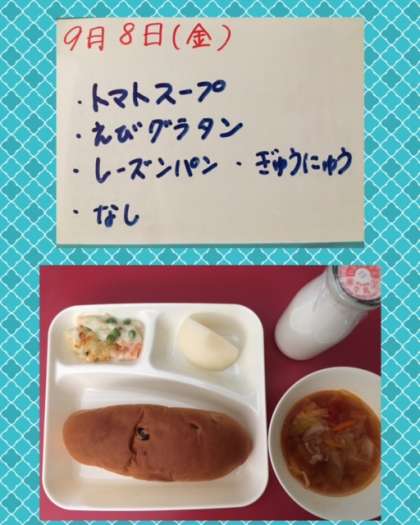 9月8日(金)
・トマトスープ
・えびグラタン
・レーズンパン ・ぎゅうにゅう
・なし